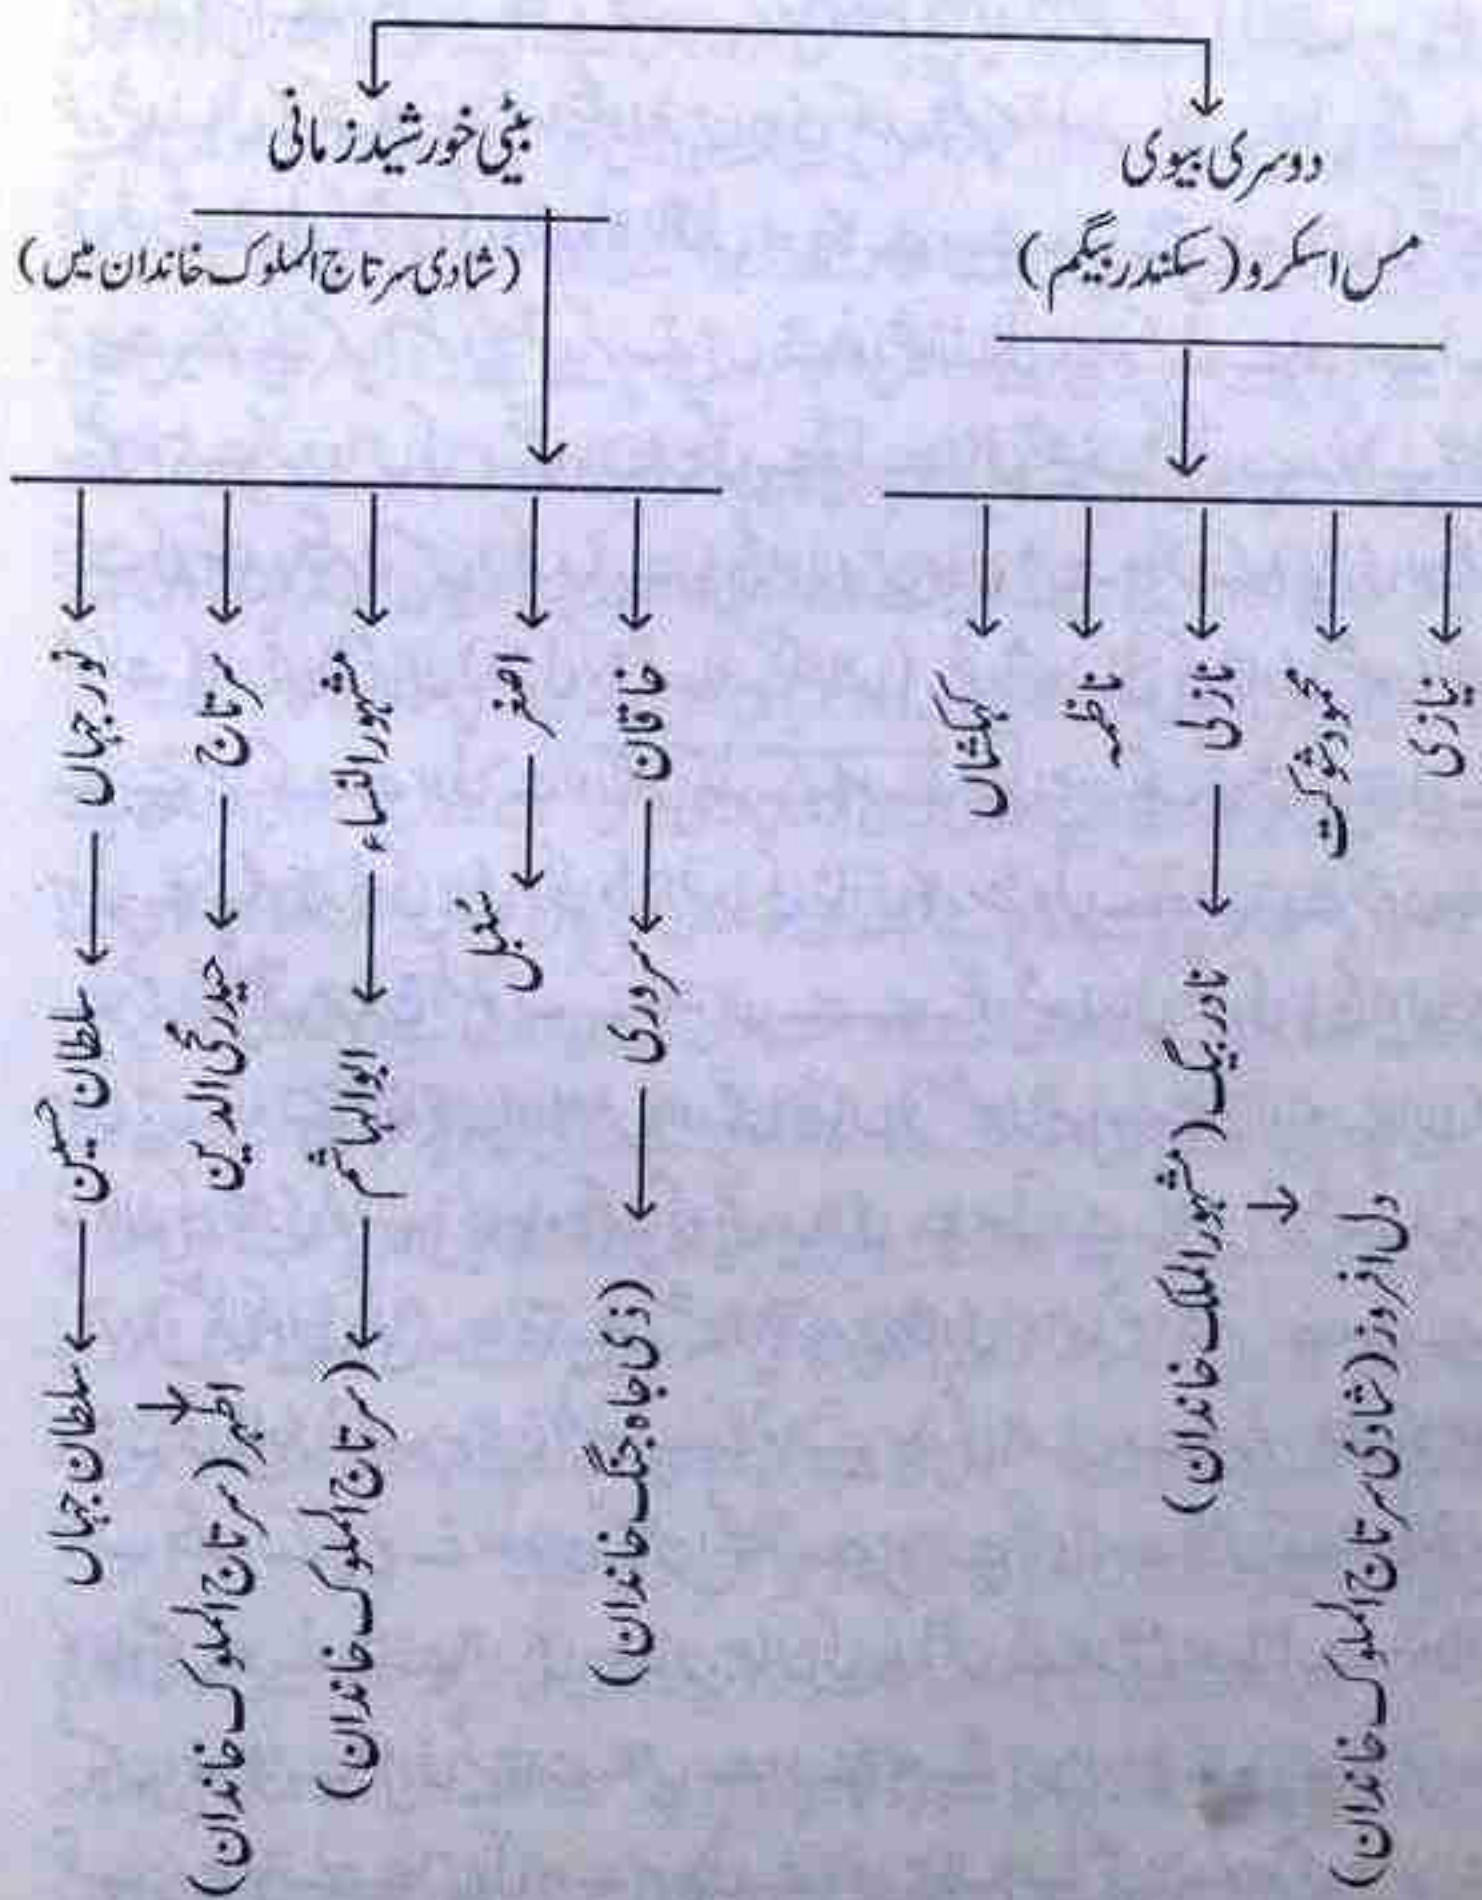 دوسری بیوی
مس اسکرو (سکندر بیگم)
نیازی
محمود شوکت
نازلی
نادر بیگ (مشہور الملک خاندان)
دل افروز (شادی سرتاج الملوک خاندان)
ناظمہ
کہکشاں
بیٹی خورشید زمانی
(شادی سرتاج الملوک خاندان میں)
خاقان
سروری
(ذی جاہ جنگ خاندان)
اصغر
سُنبل
مشہور النساء
ابوالہاشم
(سرتاج الملوک خاندان)
سرتاج
حیدر محی الدین
اطہر (سرتاج الملوک خاندان)
نور جہاں
سلطان حسین
سلطان جہاں